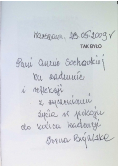 Warszawa, 28.05.2009 r
TAK BYŁO
Pani Annie Sochackiej
ku zadumie
i refleksji
z życzeniami
życia w pokoju
do końca
Irena